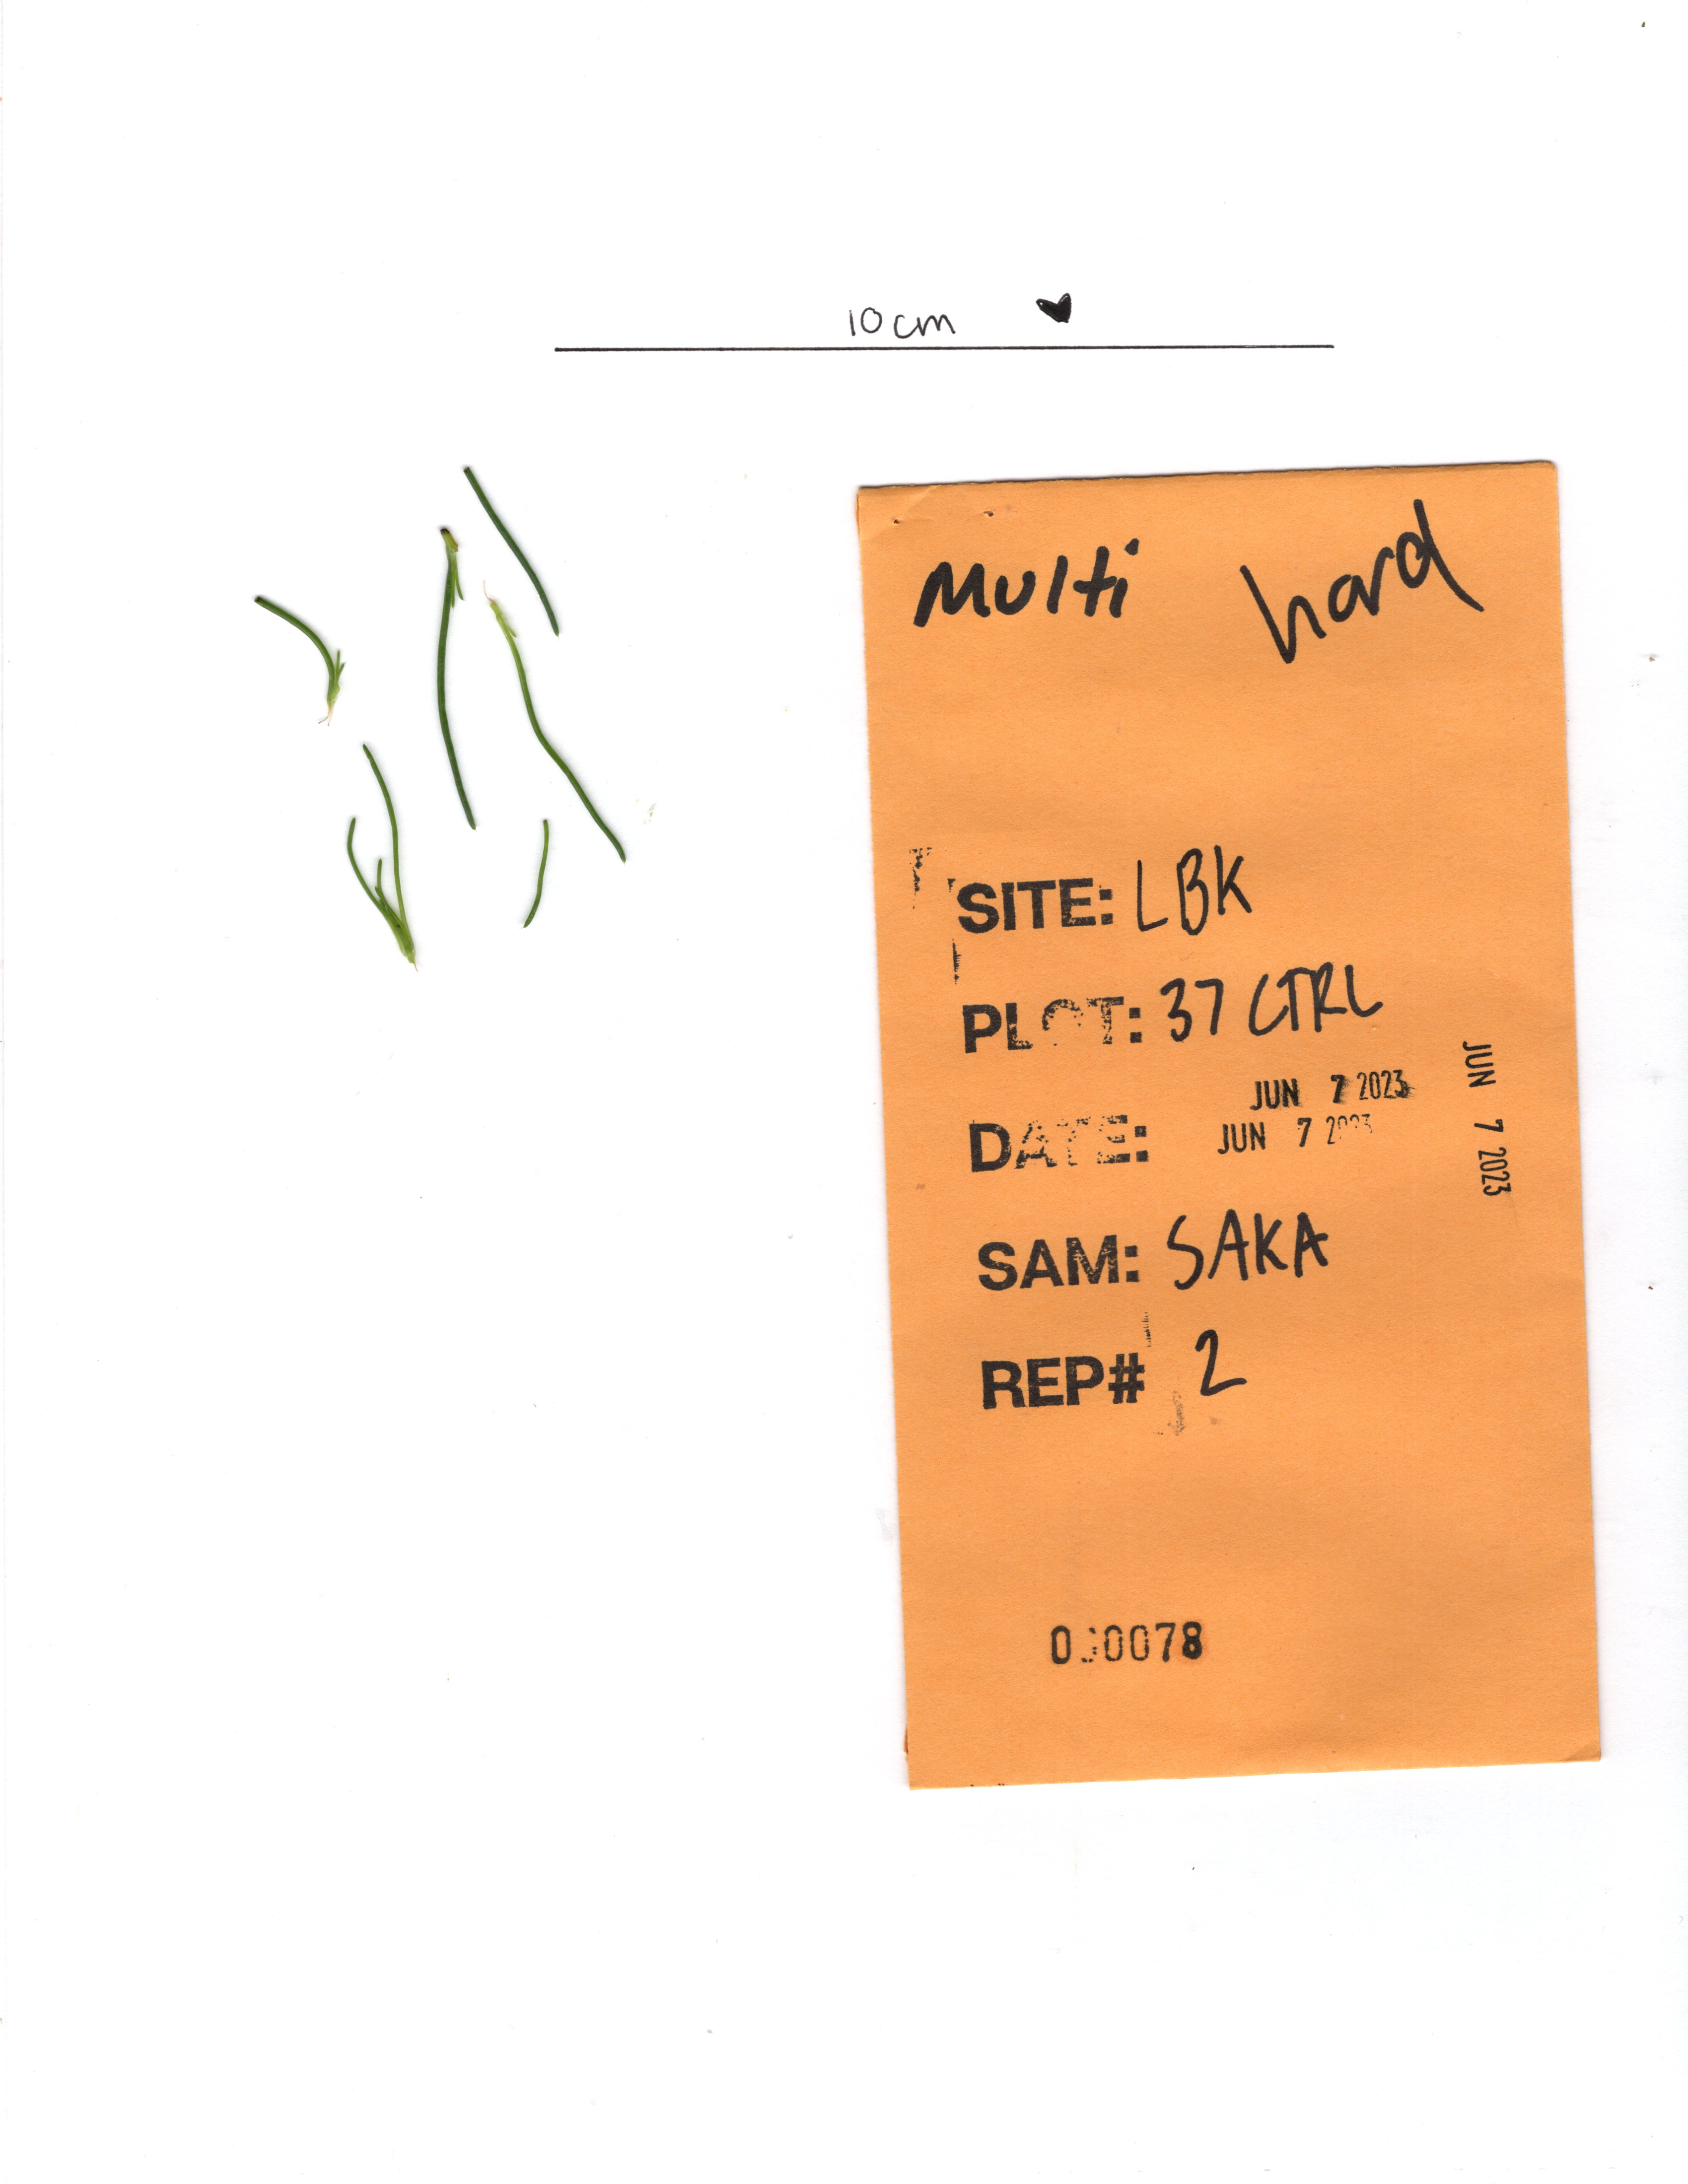 10cm
Multi hard
SITE: LBK
PLOT: 37 CTRL
JUN 7 2023
JUN 7 2023
DATE:
JUN 7 2023
SAM: SAKA
REP# 2
000078